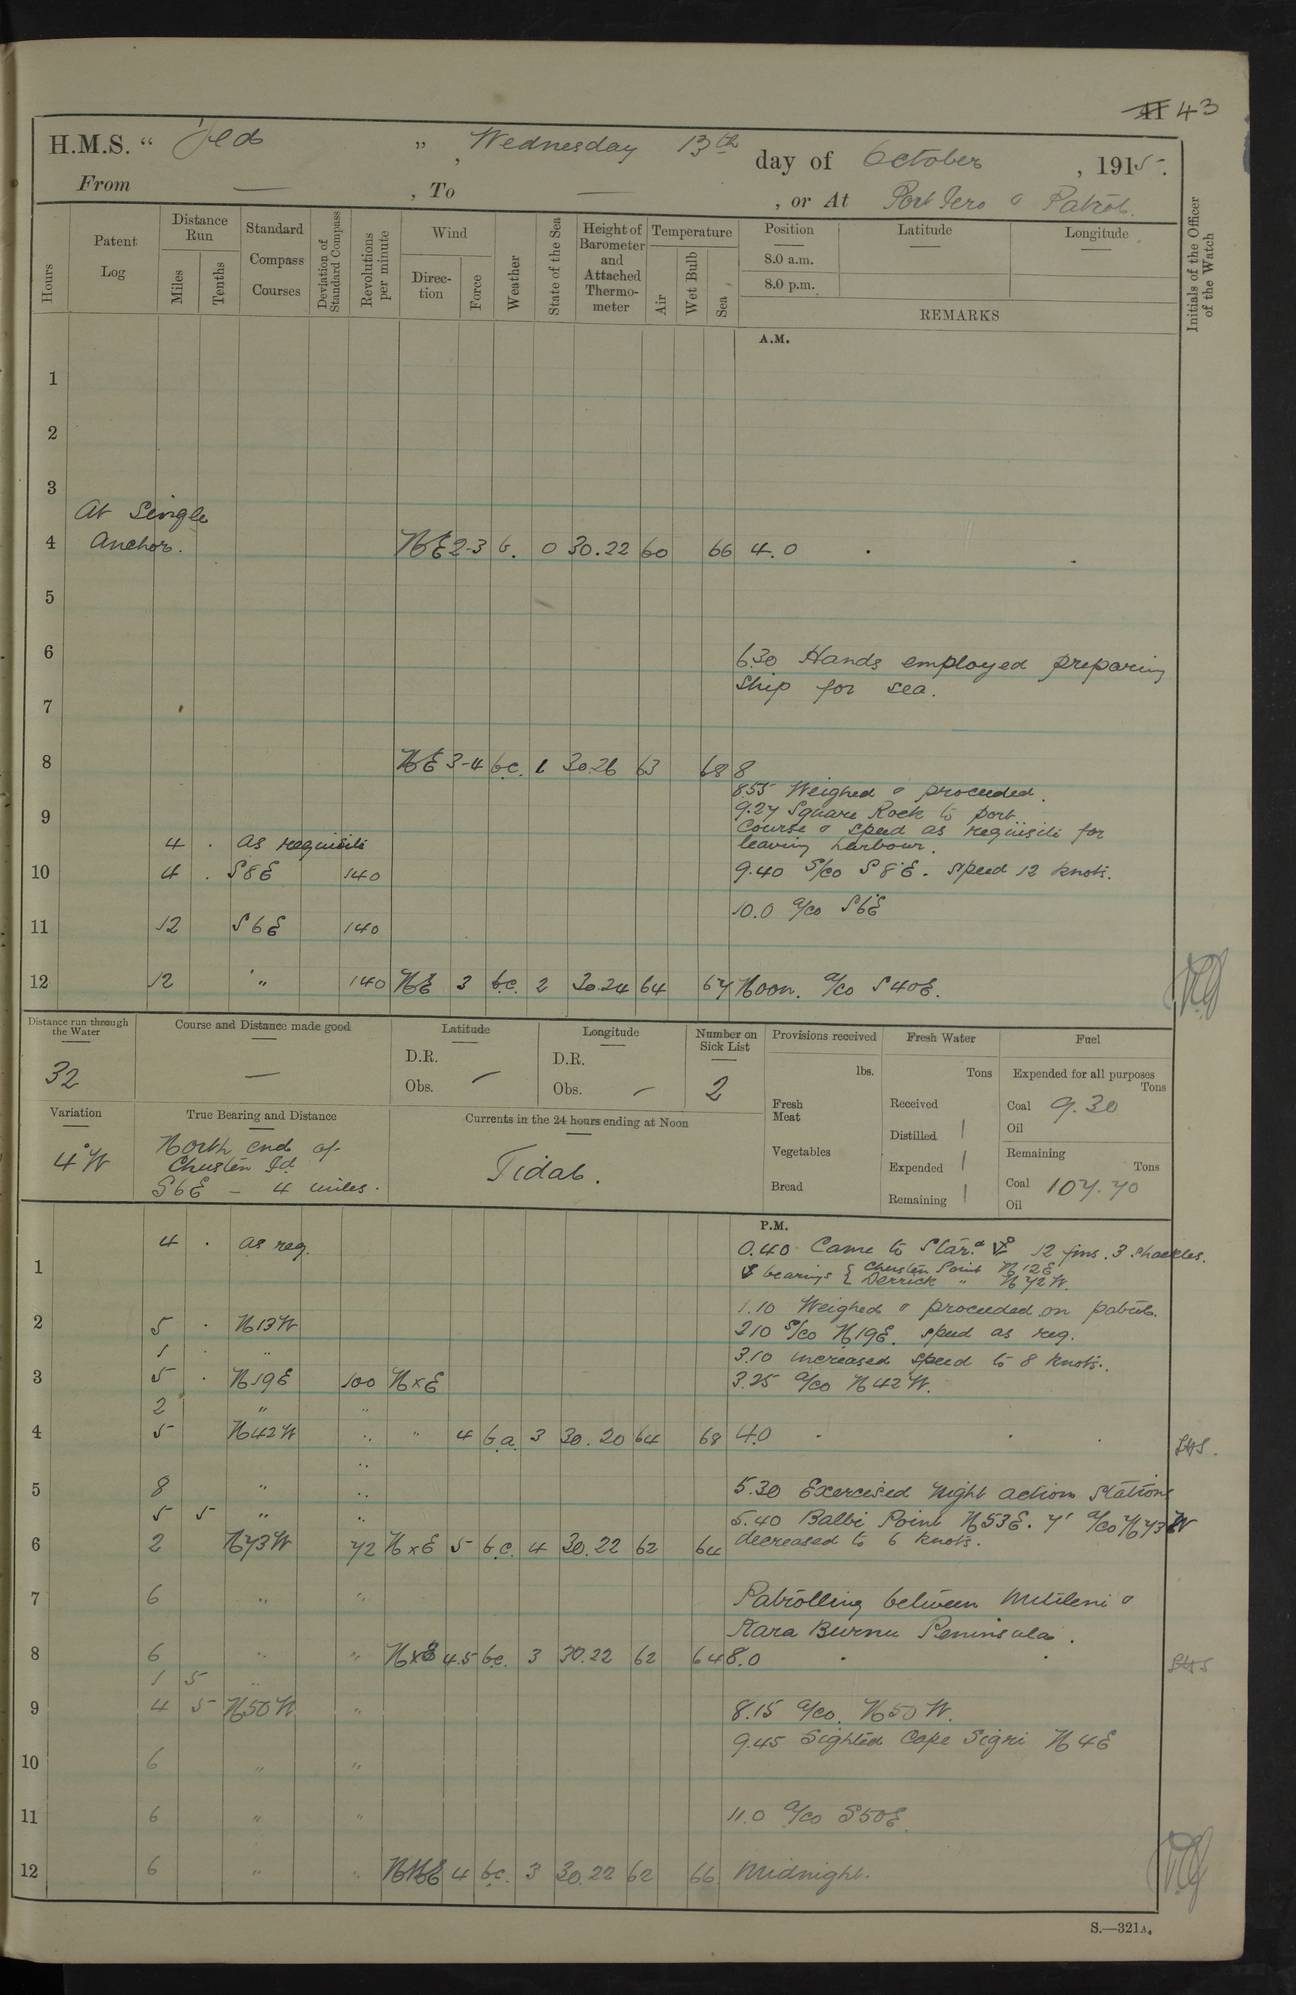 43
H.M.S. “ Jed ”, Wednesday 13th day of October, 1915.
From — , To — , or At Port Iero & Patrol.
Hours
Patent Log
Distance Run
Miles
Tenths
Standard Compass Courses
Deviation of Standard Compass
Revolutions per minute
Wind
Direction
Force
Weather
State of the Sea
Height of Barometer and Attached Thermometer
Temperature
Air
Wet Bulb
Sea
Position
8.0 a.m.
8.0 p.m.
Latitude
Longitude
REMARKS
Initials of the Officer of the Watch
A.M.
1
2
3
At Single
4 Anchor. NE 2-3 b. 0 30.22 60 66 4.0
5
6
6.30 Hands employed preparing
ship for sea.
7
8 NE 3-4 b.c. 1 30.26 63 68 8
8.55 Weighed & proceeded.
9 9.27 Square Rock to port
Course & speed as requisite for
4 . as requisite leaving harbour.
10 4 . S8E 140 9.40 S/co S8°E. Speed 12 knots.
10.0 a/co S6°E
11 12 S6E 140
12 12 " 140 NE 3 b.c. 2 30.24 64 67 Noon. a/co S40E.
Distance run through the Water
32
Course and Distance made good
—
Latitude
D.R.
Obs. —
Longitude
D.R.
Obs. —
Number on Sick List
2
Provisions received
lbs.
Fresh Meat
Vegetables
Bread
Fresh Water
Tons
Received
Distilled
Expended
Remaining
Fuel
Expended for all purposes
Tons
Coal 9.30
Oil
Remaining
Tons
Coal 107.70
Oil
Variation
4°W
True Bearing and Distance
North end of
Chustan Id
S6E – 4 miles.
Currents in the 24 hours ending at Noon
Tidal.
P.M.
4 . as req. 0.40 Came to Star. 12 fms. 3 shackles.
1 bearings { Chustan Point N12E
{ Derrick " N72W.
1.10 Weighed & proceeded on patrol.
2 5 . N13W 2.10 S/co N19E. speed as req.
1 . " 3.10 increased speed to 8 knots.
3 5 . N19E 100 NxE 3.25 a/co N42°W.
2 " "
4 5 N42W " " 4 b.c. 3 30.20 64 68 4.0
"
5 8 " " 5.30 Exercised Night action stations
5 5 " " 5.40 Balbi Point N53E. 7' a/co N73W
6 2 N73W 72 NxE 5 b.c. 4 30.22 62 64 decreased to 6 knots.
7 6 " " Patrolling between Mitileni &
Kara Burnu Peninsula.
8 6 " " NxE 4.5 b.c. 3 30.22 62 64 8.0
1 5 "
9 4 5 N50W " 8.15 a/co. N50W.
9.45 Sighted Cape Sigri N4E
10 6 " "
11 6 " " 11.0 a/co S50E.
12 6 " " NNE 4 b.c. 3 30.22 62 66 Midnight.
S.—321A.